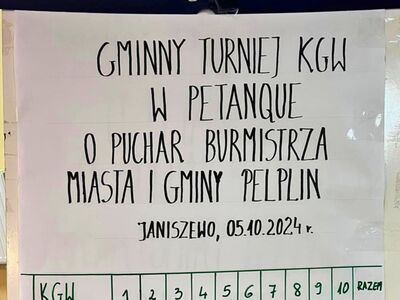 GMINNY TURNIEJ KGW
W PETANQUE
O PUCHAR BURMISTRZA
MIASTA I GMINY PELPLIN
JANISZEWO, 05.10.2024 r.
KGW 1 2 3 4 5 6 7 8 9 10 RAZEM